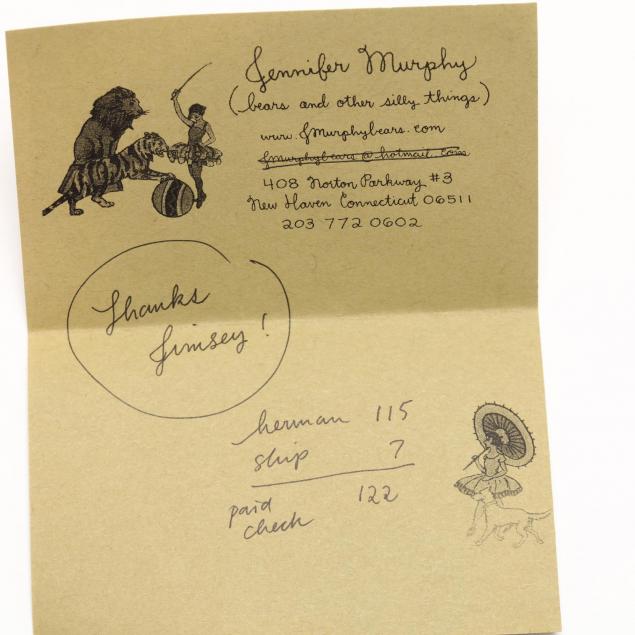 Jennifer Murphy
(bears and other silly things)
www.jMurphybears.com
jmurphybears@hotmail.com
408 Norton Parkway #3
New Haven Connecticut 06511
203 772 0602
Thanks
Jimsey!
herman 115
ship 7
122
paid
check